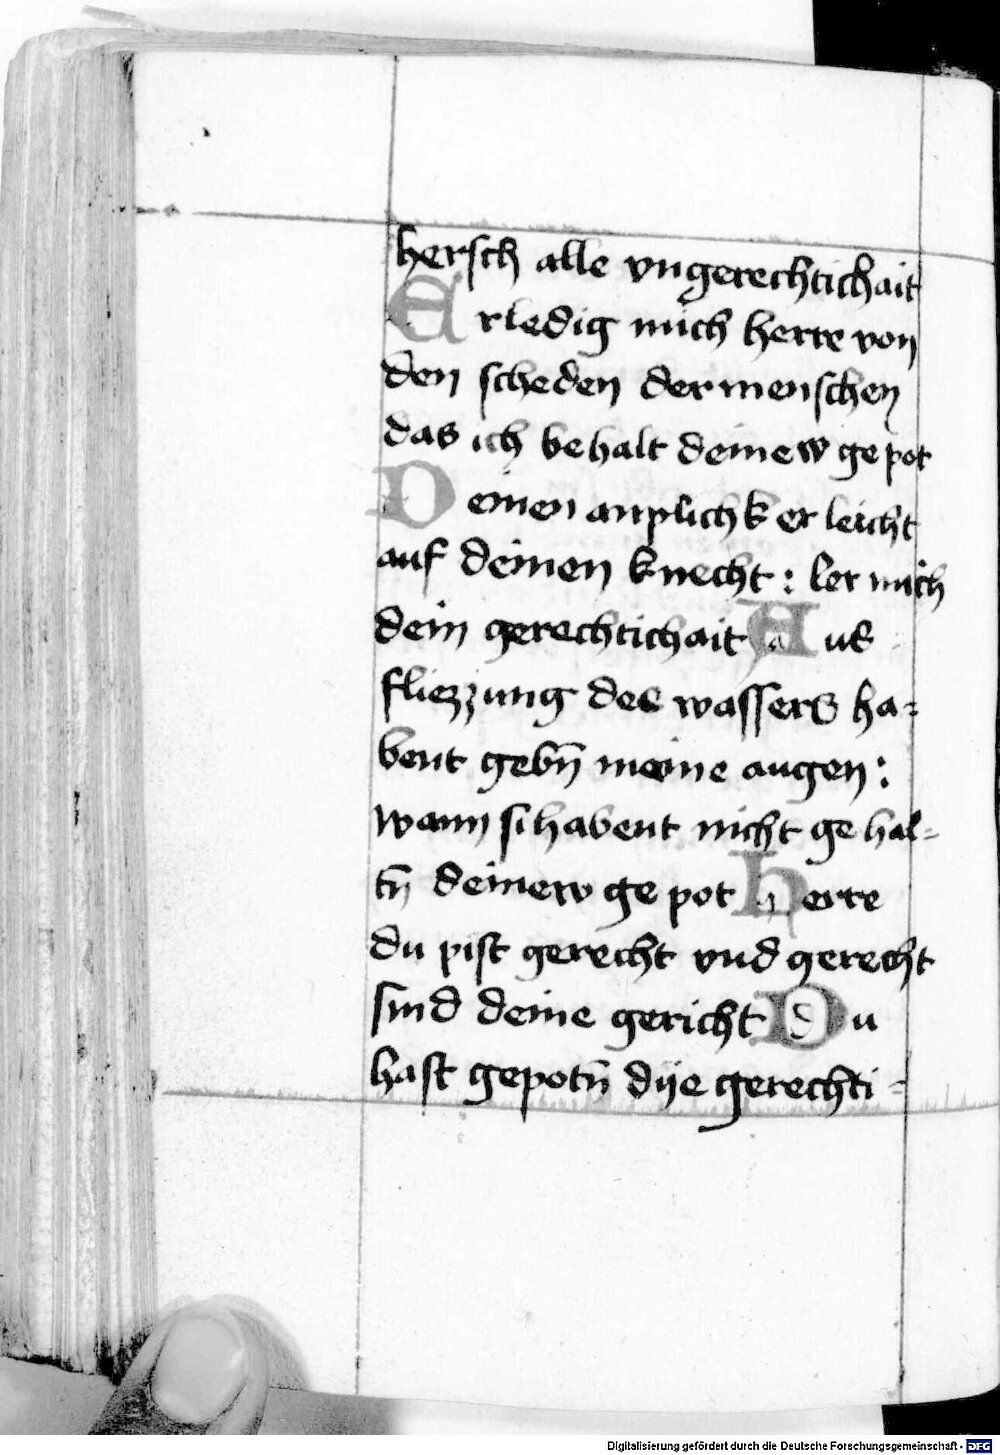 hersch alle vngerechtichait
Erledig mich herre von
den scheden der menschen
das ich behalt deinew gepot
Deinen antplichk erleicht
auf deinen knecht: ler mich
dein gerechtichait Aus
fliezzung des wassers ha-
bent gebn̄ meine augen:
wann si habent nicht gehal-
tn̄ deinew gepot herre
du pist gerecht vnd gerecht
sind deine gericht Du
hast gepotn̄ dije gerechti-
Digitalisierung gefördert durch die Deutsche Forschungsgemeinschaft - DFG